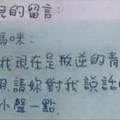 兒的留言:
媽咪:
我現在是叛逆的青
期,請妳對我說話
小聲一點.